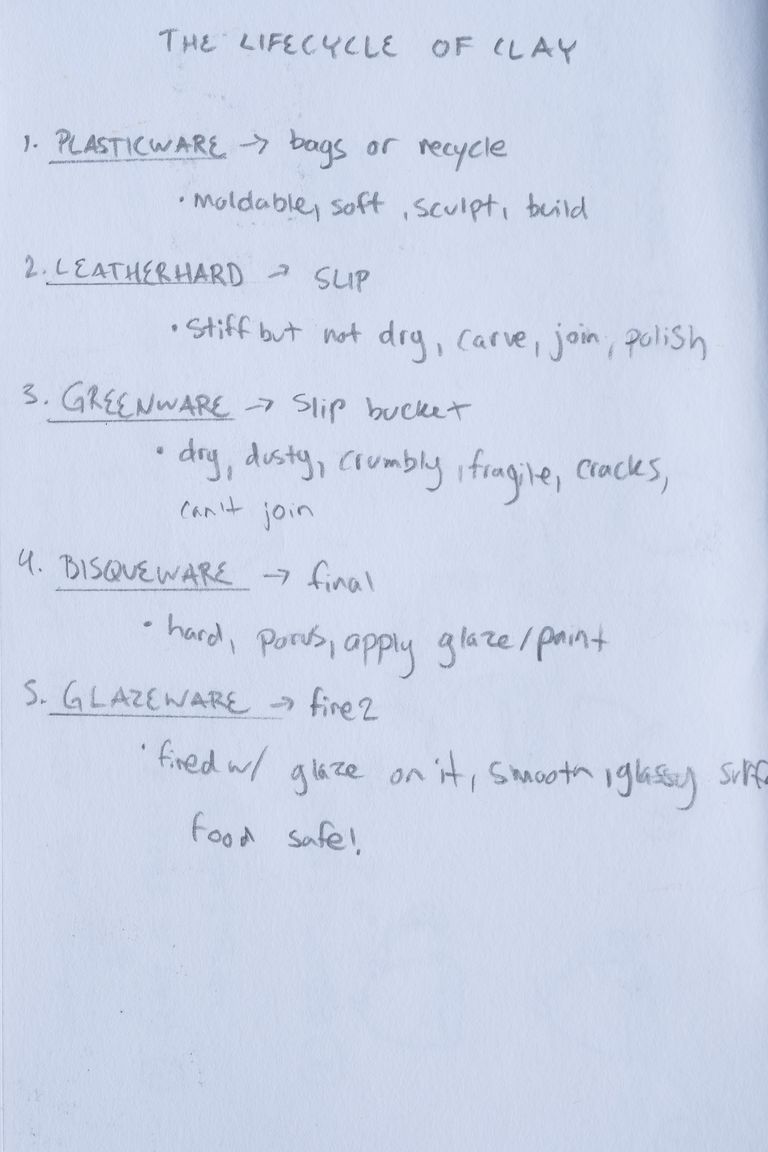 THE LIFECYCLE OF CLAY
1. PLASTICWARE → bags or recycle
• moldable, soft, sculpt, build
2. LEATHERHARD → SLIP
• stiff but not dry, carve, join, polish
3. GREENWARE → Slip bucket
• dry, dusty, crumbly, fragile, cracks,
can't join
4. BISQUEWARE → final
• hard, porus, apply glaze/paint
5. GLAZEWARE → fire 2
• fired w/ glaze on it, smooth, glassy
food safe!